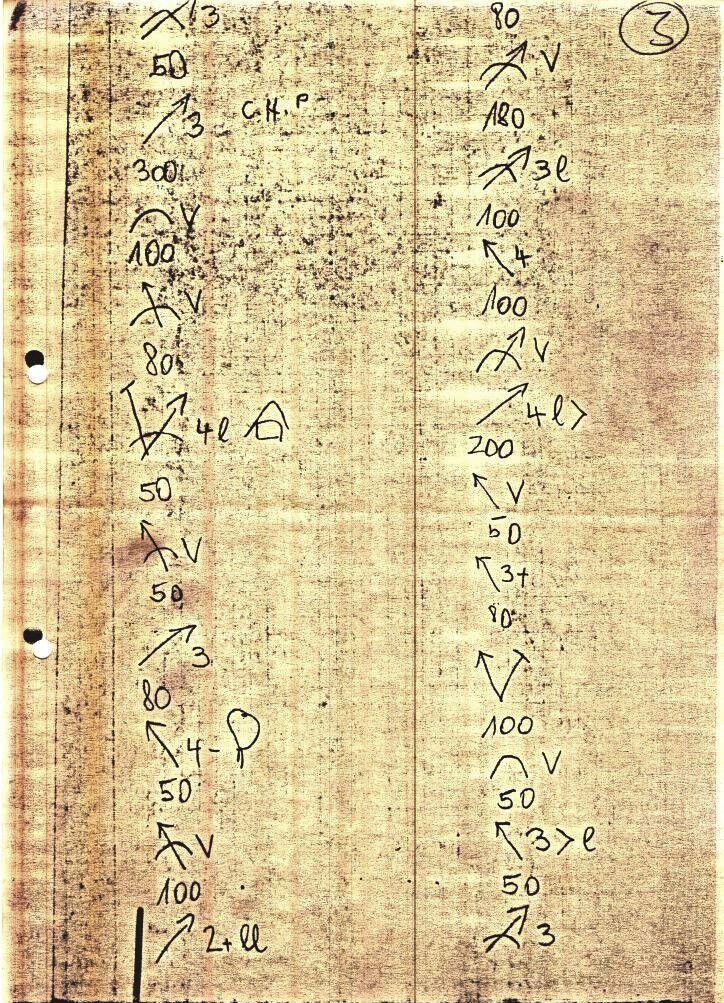 3
50
3 C.H.P
300
V
100
V
80
4l
50
V
50
3
80
4-
50
V
100
2+ll
3
80
V
180
3l
100
4
100
V
4l>
200
V
50
3+
80
100
V
50
3>l
50
3